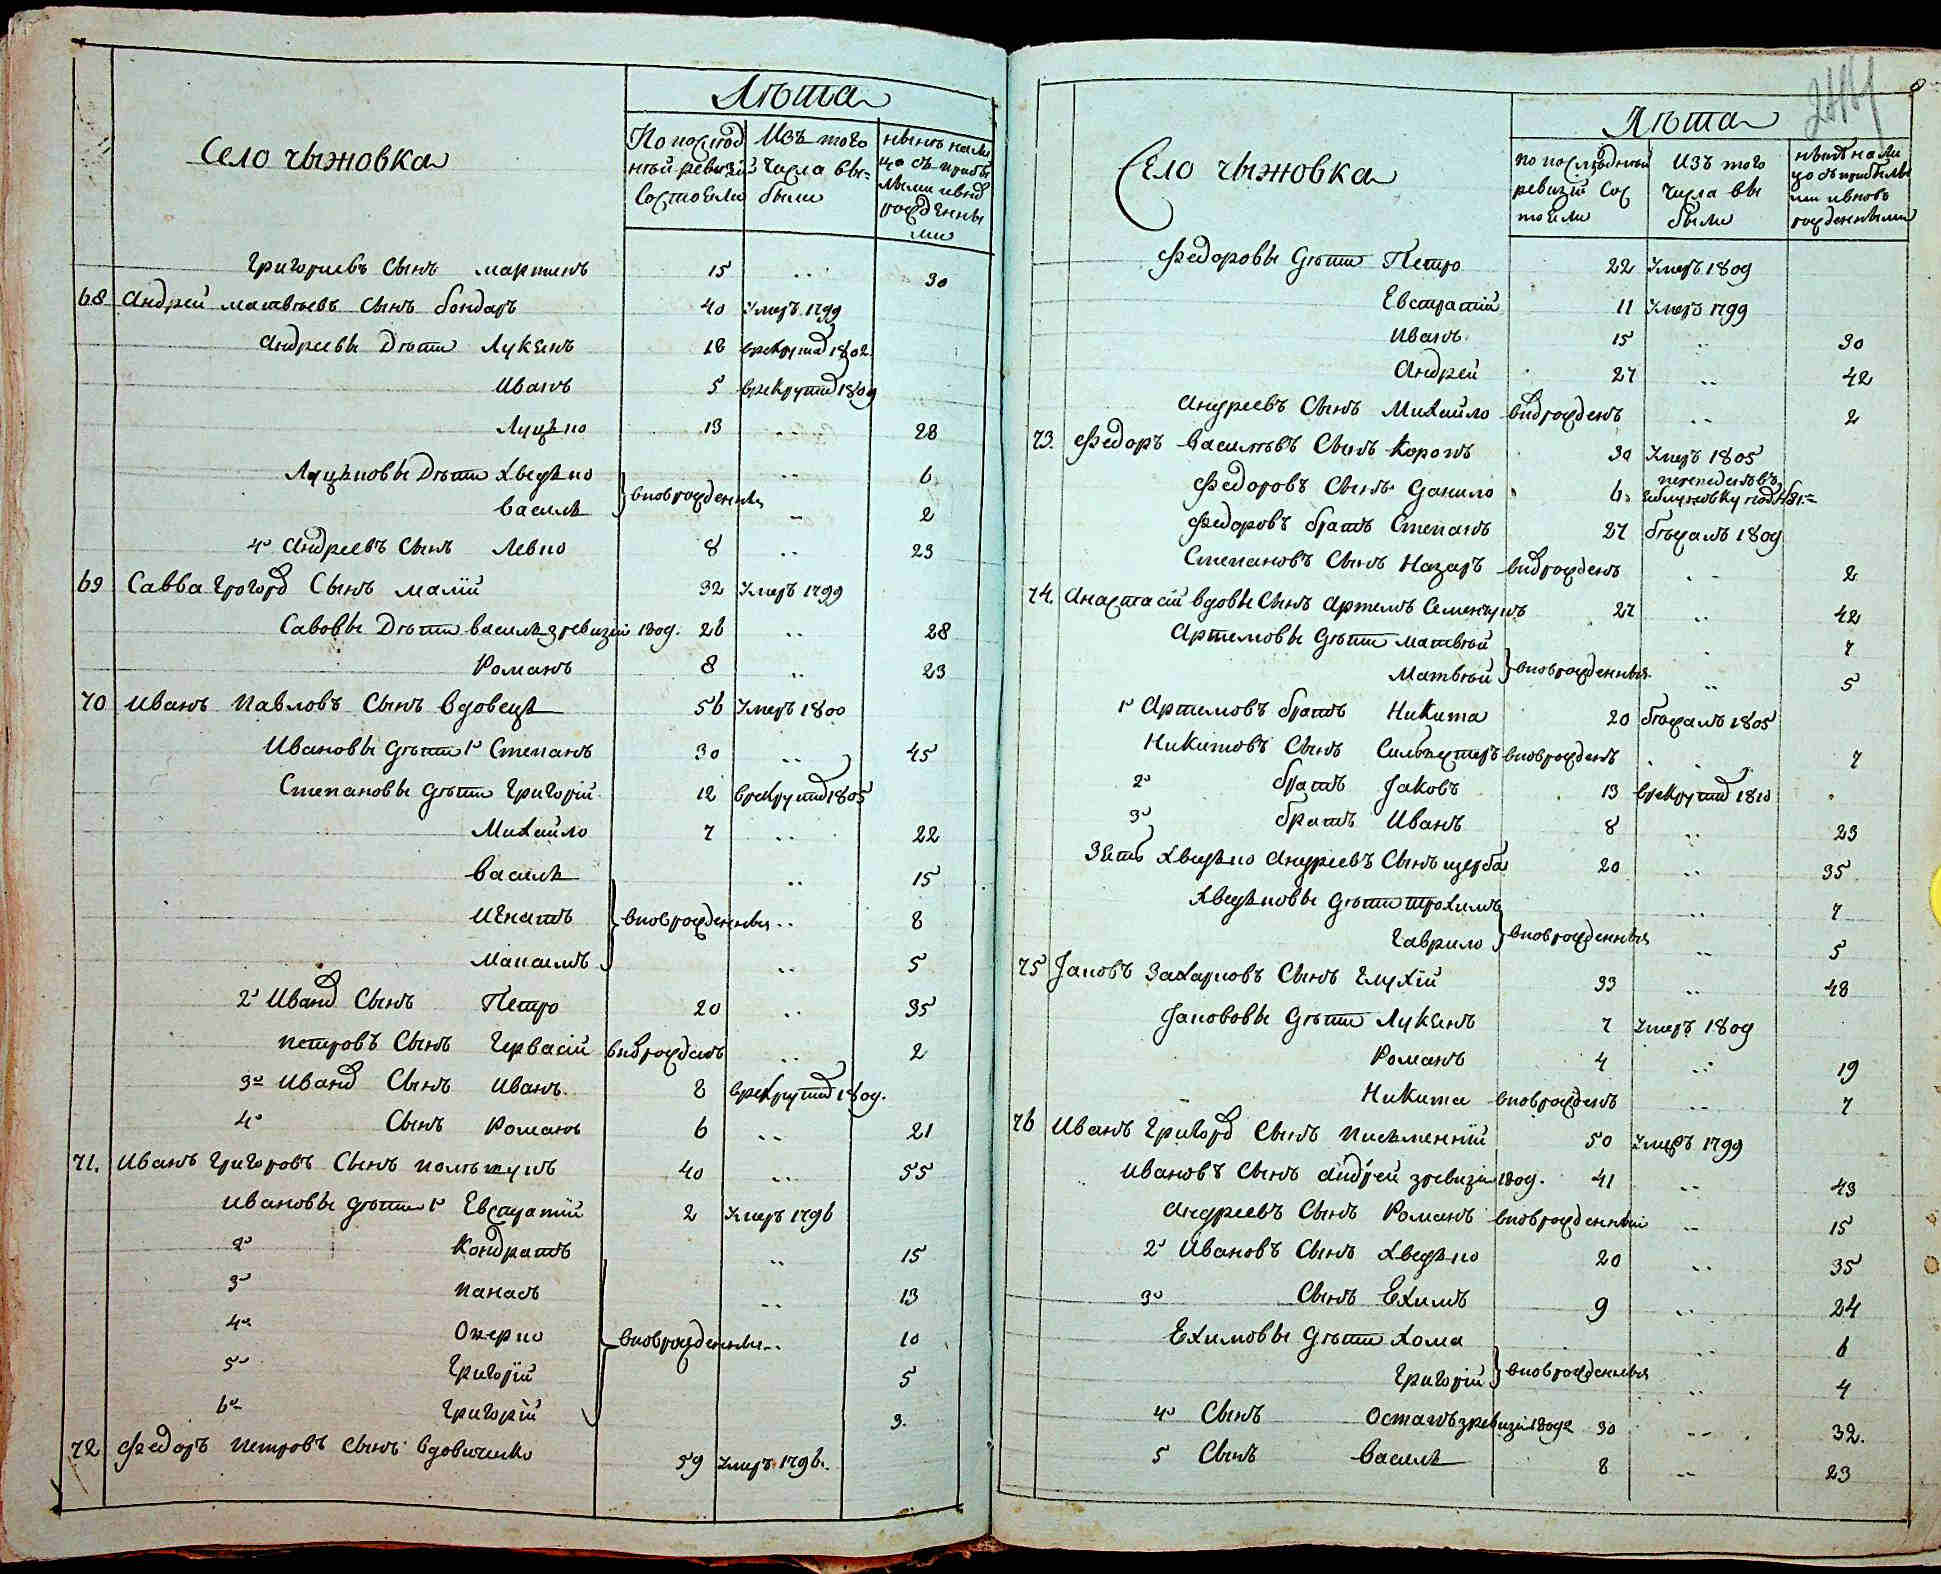 Село чыжовка
Лѣта
По послѣд
нѣй ревизій
состояли
Изъ того
числа вы=
были
нынѣ на ли
цо съ прибы
лыми и внов
рожденны
ми
Григориевъ Сынъ мартинъ 15 .. 30
68 Андрей матвѣевъ Сынъ бондаръ 40 Умеръ 1799
Андреевы Дѣти Лукіянъ 18 врекрути 1802
Иванъ 5 врекрути 1809
Луцько 13 .. 28
Луцьковы Дѣти Хведько .. 6
василь вновърожденныя .. 2
4й Андреевъ Сынъ Левко 8 .. 23
69 Савва Григоро Сынъ малій 32 Умеръ 1799
Савовы Дѣти василь зревизіи 180д. 26 .. 28
Романъ 8 .. 23
70 Иванъ Павловъ Сынъ вдовець 56 Умеръ 1800
Ивановы дѣти 1й Степанъ 30 .. 45
Степановы дѣти Григорій 12 врекрути 1805
Михайло 7 .. 22
василь .. 15
Игнатъ вновърожденныя .. 8
Макаимъ .. 5
2й Ивано Сынъ Петро 20 .. 35
петровъ Сынъ Гервасій вновърожденъ .. 2
3й Ивано Сынъ Иванъ 8 врекрути 180д.
4й Сынъ Романъ 6 .. 21
71. Иванъ Григоровъ Сынъ колтунъ 40 .. 55
Ивановы дѣти 1й Евстратій 2 Умеръ 1796
2й Кондратъ .. 15
3й панасъ .. 13
4й Оверко вновърожденныя .. 10
5й Григорій 5
6й Григорій 3.
72 Федоръ петровъ Сынъ вдовиченко 59 Умеръ 1796.
Село чыжовка
Лѣта
по послѣдней
ревизіи сос
тояли
Изъ того
числа вы
были
нынѣ на ли
цо съ прибылы
ми и вновъ
рожденными
Федоровы дѣти Петро 22 Умеръ 1809
Евстратій 11 Умеръ 1799
Иванъ 15 .. 30
Андрей 27 .. 42
Андреевъ Сынъ Михайло вновърожденъ .. 2
73. Федоръ васильевъ Сынъ Коронъ 30 Умеръ 1805
Федоровъ Сынъ данило 6
Федоровъ братъ Степанъ 27 бѣжалъ 1809
Степановъ Сынъ Назаръ вновърожденъ .. 2
74. Анастасій вдовы Сынъ Артемъ Семенчукъ 27 .. 42
Артемовы дѣти матвѣй . 7
Матвѣй вновърожденныя .. 5
1й Артемовъ братъ Никита 20 бѣжалъ 1805
Никитовъ Сынъ Сильвестеръ вновърожденъ . 7
2й братъ Јаковъ 13 врекрути 1810
3й братъ Иванъ 8 .. 23
Зять Хведько Андреевъ Сынъ щерба 20 .. 35
Хведьковы дѣти трохимъ .. 7
Гаврило вновърожденныя .. 5
75 Јаковъ Захарковъ Сынъ Глухій 33 .. 48
Јакововы дѣти Лукіянъ 7 Умеръ 1809
Романъ 4 .. 19
Никита вновърожденъ .. 7
76 Иванъ Григоро Сынъ письменній 50 Умеръ 1799
Ивановъ Сынъ Андрей зревизіи 180д. 41 .. 43
Андреевъ Сынъ Романъ вновърожденный .. 15
2й Ивановъ Сынъ Хведько 20 .. 35
3й Сынъ Ехимъ 9 .. 24
Ехимовы дѣти Хома .. 6
Григорій вновърожденныя .. 4
4й Сынъ Остапъ зревизіи 180д 30 .. 32.
5 Сынъ василь 8 .. 23